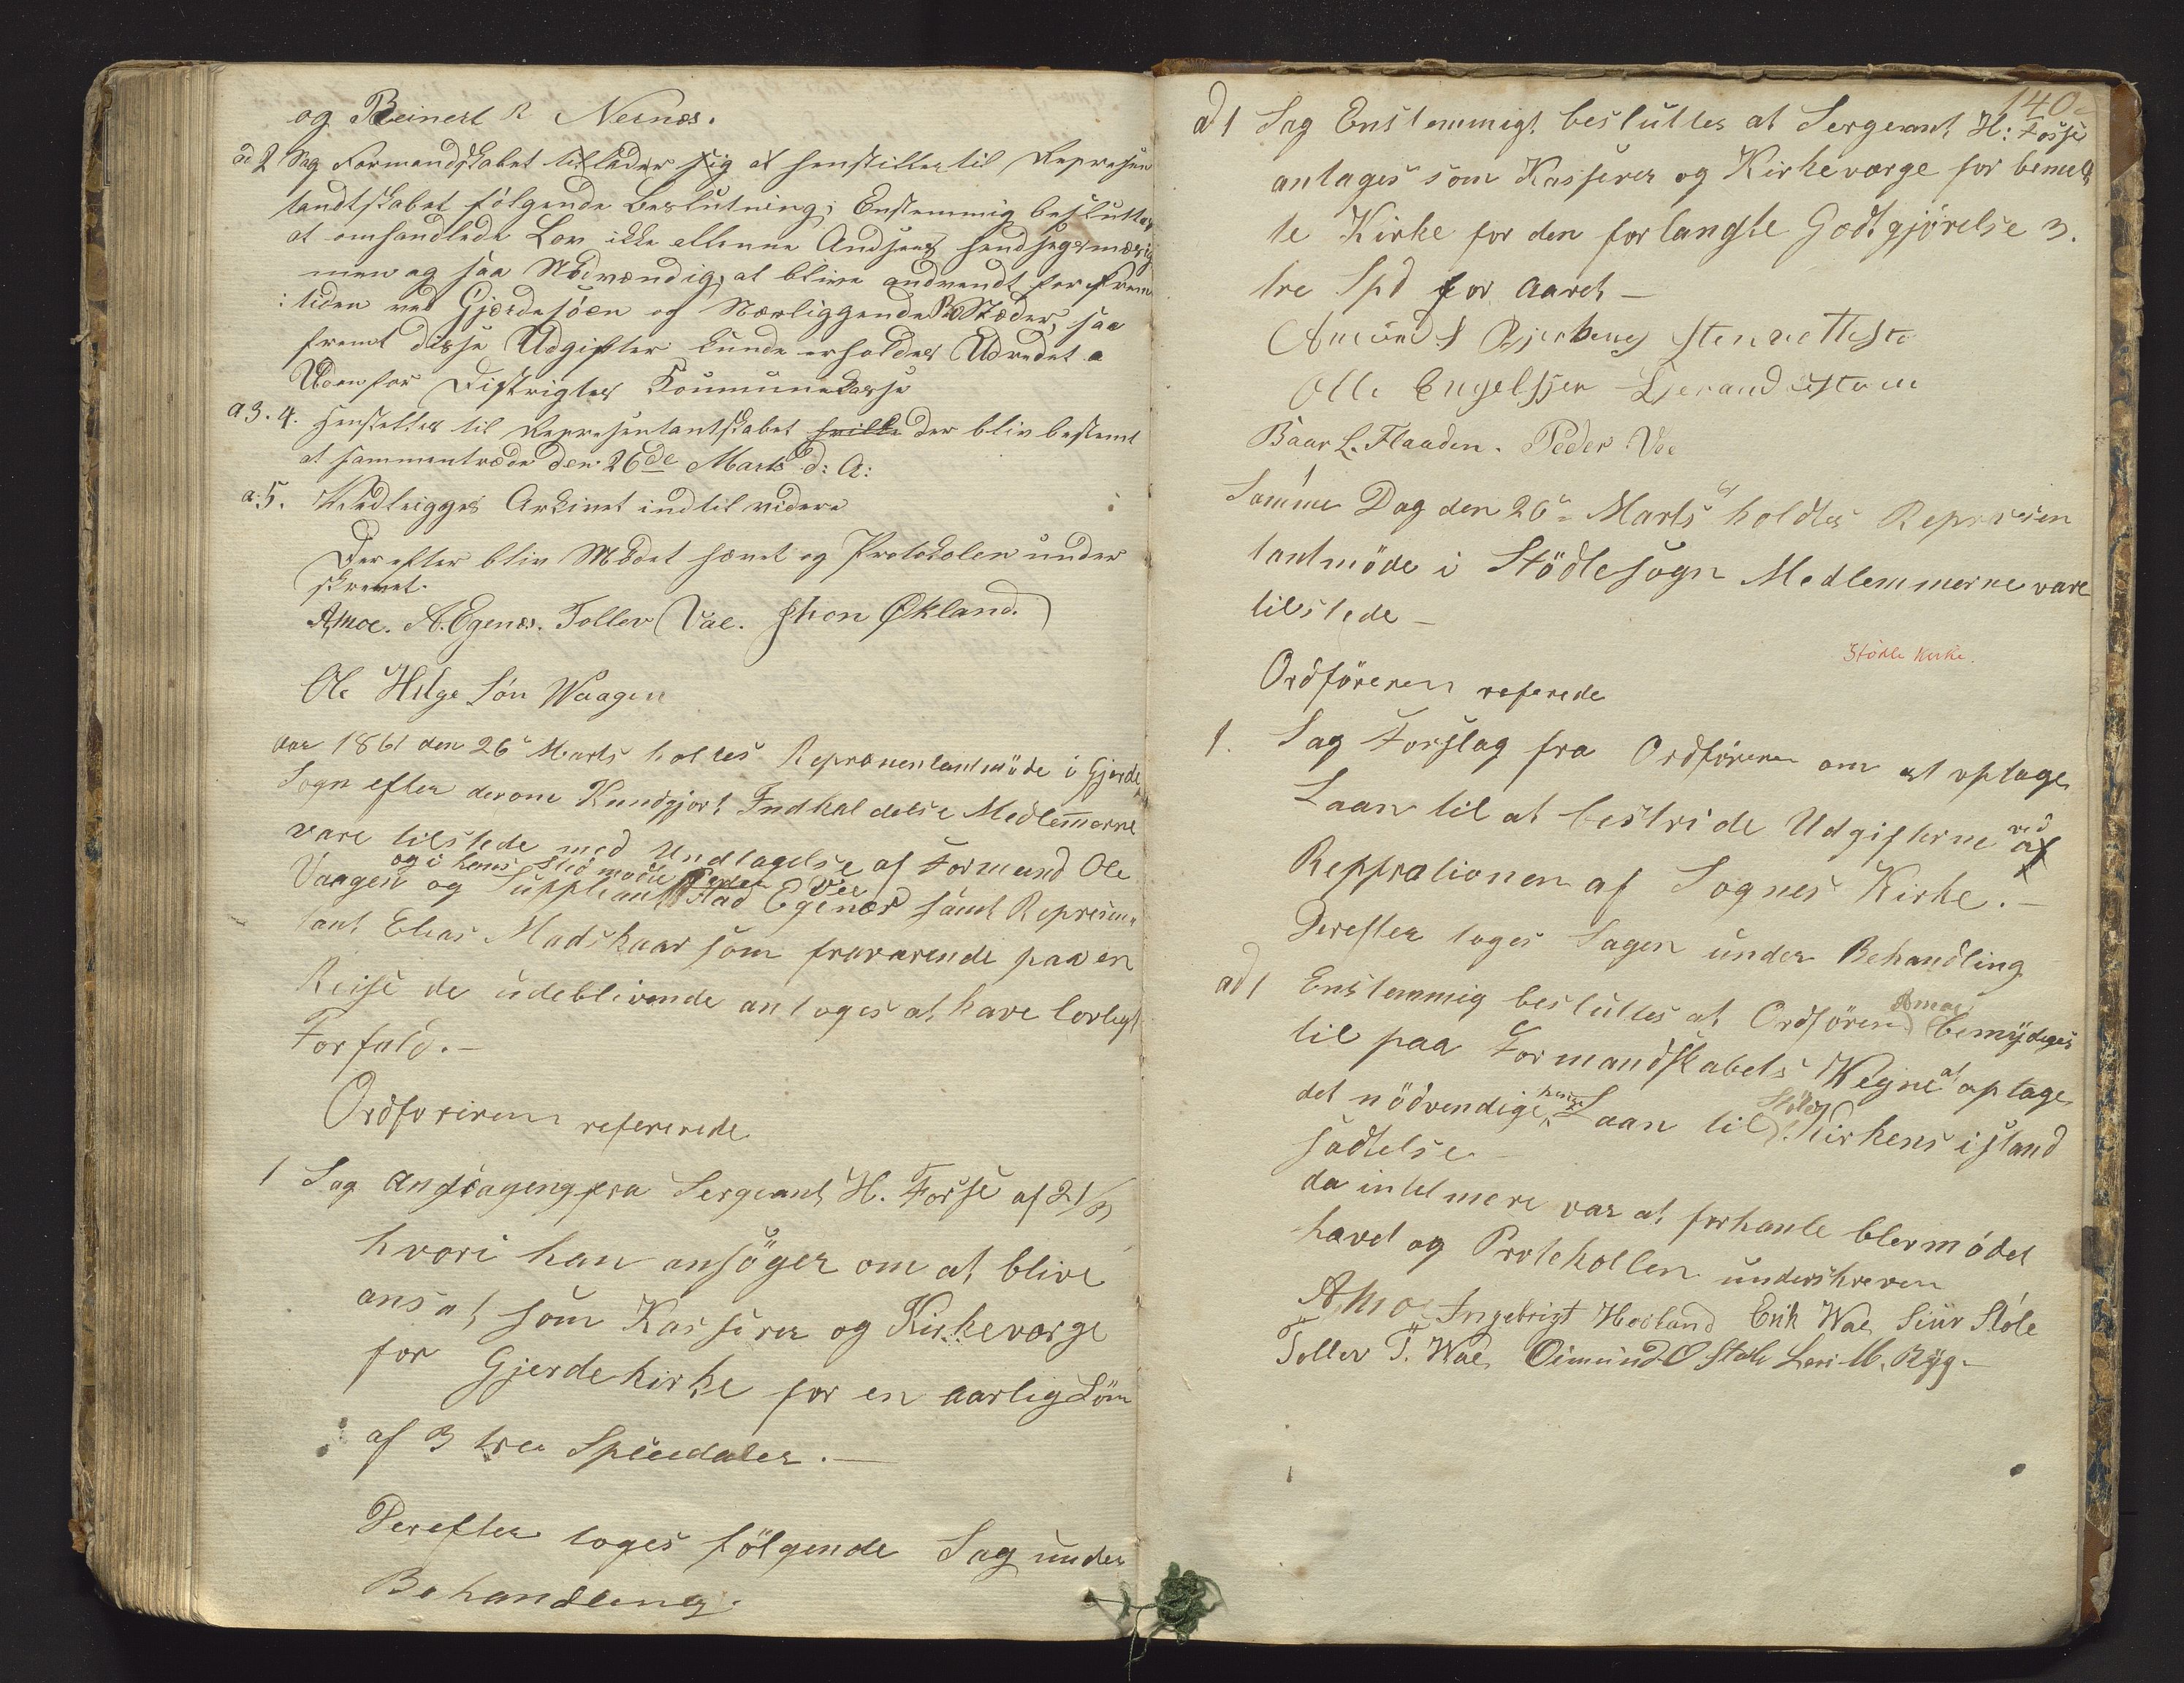 og Reinert R Nernæs.
ad 2 Sag Formandskabet tillader sig at henstilles til Represen
tandtskabet følgende Beslutning; Enstemmig besluttes
at omhandlede Lov ikke allenne Andsees hendsigsmæsig
men og saa Nødvændig, at blive andvendt for Frem
tiden ved Gjerdesøen og Nærliggende Stæder, saa
fremt disse Udgifter kunde erholdes Udredet
Udenfor Distrigtes Kommunekasse
a 3. 4. Henstilles til Representantskabet hvilke der bliv bestemt
at sammentræde den 26de Marts d: A:
a 5. Nedlegges Arkivet indtil videre
Der efter bliv Mødet hævet og Protokolen under
skrevet.
Amoe. A. Egenes. Tollev Vae. Jhon Økland.
Ole Helge Søn Waagen
Aar 1861 den 26de Marts holtes Represententmøde i Gjerde
Sogn efter derom Kundgjort Indkaldelse Medlemmerne
vare tilstede med Undtagelse af Formand Ole
og i hans Sted mødte Peder Vee
Vaagen og Suppleant Stad Egenæs samt Represen-
tant Elias Madskaar som fraværende paa en
Reise de udeblivende antoges at have lovligt
Forfald.-
Ordføreren refererede
1 Sag Andragengfra Sergeant H. Fosse af 21/3
hvori han ansøger om at blive
ansat som Kasserer og Kirkeværge
for Gjerde kirke for en aarlig Løn
af 3 tre Speciedaler.-
Derefter toges følgende Sag under
Behandling.
140
ad 1 Sag Enstemmigt besluttes at Sergeant H: Fosse
antages som Kasserer og Kirkeværge for bemelt
te Kirke for den forlangte Godtgjørelse 3.
tre Spd for Aaret-
Amund
Olle Engelsjer
Baar L. Flaaden. Peder Vee
Samme Dag den 26de Marts holdtes Represen
tantmøde i Stødlesogn Medlemmerne vare
tilstede-
Stødle Kirke.
Ordføreren referede
1. Sag Forslag fra Ordføreren om at optage
Laan til at bestride Udgifterne ved af
Reppralionen af Sognes Kirke.-
Derefter toges Sagen under Behandling
ad 1 Enstemmig besluttes at Ordføren Amoe bemydiges
til paa Formandskabets Vegne at optage
det nödvendige Laan til Stöle Kirkens istand
sædtelse-
da intet mere var at forhanle blev mødet
hævet og Protekollen underskreven
Amoe Ingebrigt Hovland Erik Wae Siur Støle
Tollev T. Wae Oimund O Støle Lars M. Ryg.-